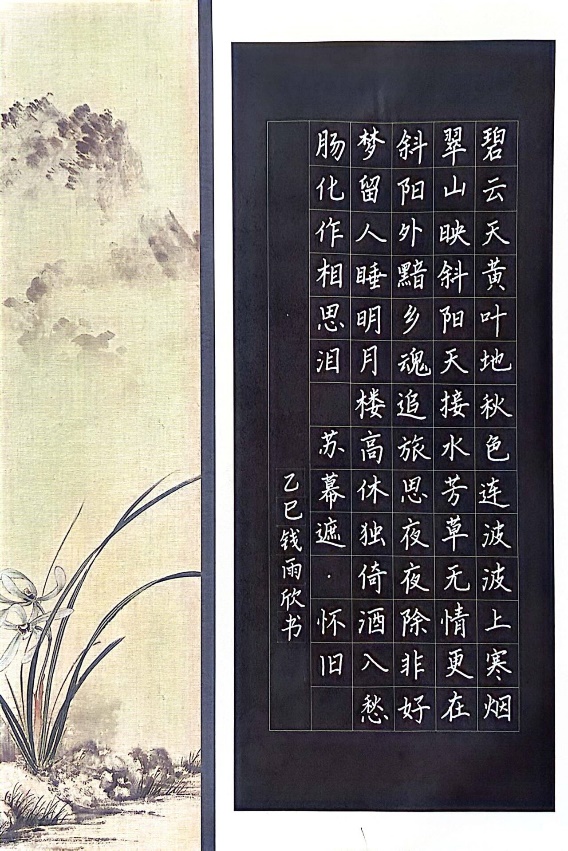 碧云天黄叶地秋色连波波上寒烟
翠山映斜阳天接水芳草无情更在
斜阳外黯乡魂追旅思夜夜除非好
梦留人睡明月楼高休独倚酒入愁
肠化作相思泪 苏幕遮·怀旧
乙巳钱雨欣书